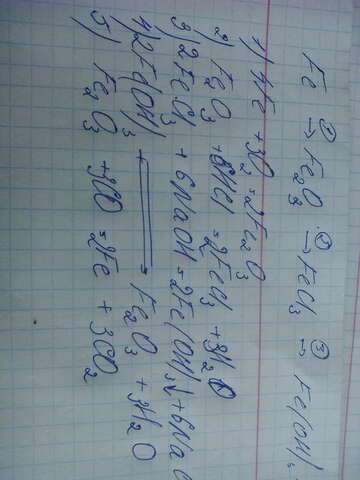 Fe →① Fe₂O₃ →② FeCl₃ →③ Fe(OH)
1) 4Fe + 3O₂ = 2Fe₂O₃
2) Fe₂O₃ + 6HCl = 2FeCl₃ + 3H₂O
3) 2FeCl₃ + 6NaOH = 2Fe(OH)₃↓ + 6Na
4) 2Fe(OH)₃ + = Fe₂O₃ + 3H₂O
5) Fe₂O₃ + 3CO = 2Fe + 3CO₂